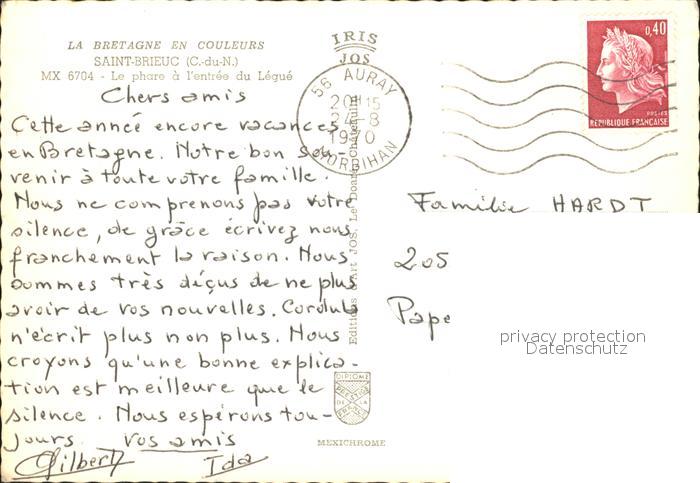 LA BRETAGNE EN COULEURS
SAINT-BRIEUC (C.-du-N.)
MX 6704 - Le phare à l'entrée du Légué
Chers amis
Cette année encore vacances
en Bretagne. Notre bon sou-
venir à toute votre famille.
Nous ne comprenons pas votre
silence, de grâce écrivez nous
franchement la raison. Nous
sommes très déçus de ne plus
avoir de vos nouvelles. Cordula
n'écrit plus non plus. Nous
croyons qu'une bonne explica-
tion est meilleure que le
silence. Nous espérons tou-
jours. vos amis
Gilbert Ida
IRIS
JOS
56 AURAY
20H15
24-8
1970
MORBIHAN
Editions d'Art JOS, Le Doaré, Châteaulin
DIPLOME
PRESTIGE
DE LA
FRANCE
MEXICHROME
0,40
POSTES
REPUBLIQUE FRANÇAISE
Familie HARDT
205
Pape
privacy protection
Datenschutz